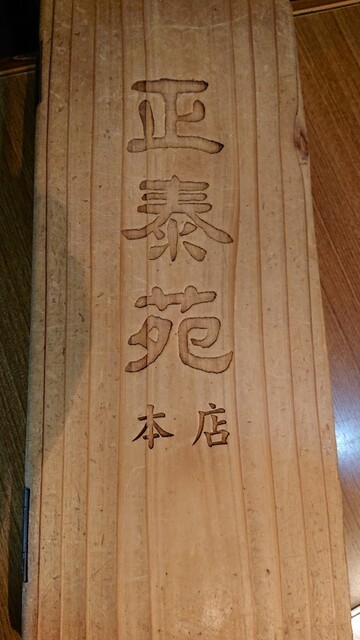 正泰苑
本店